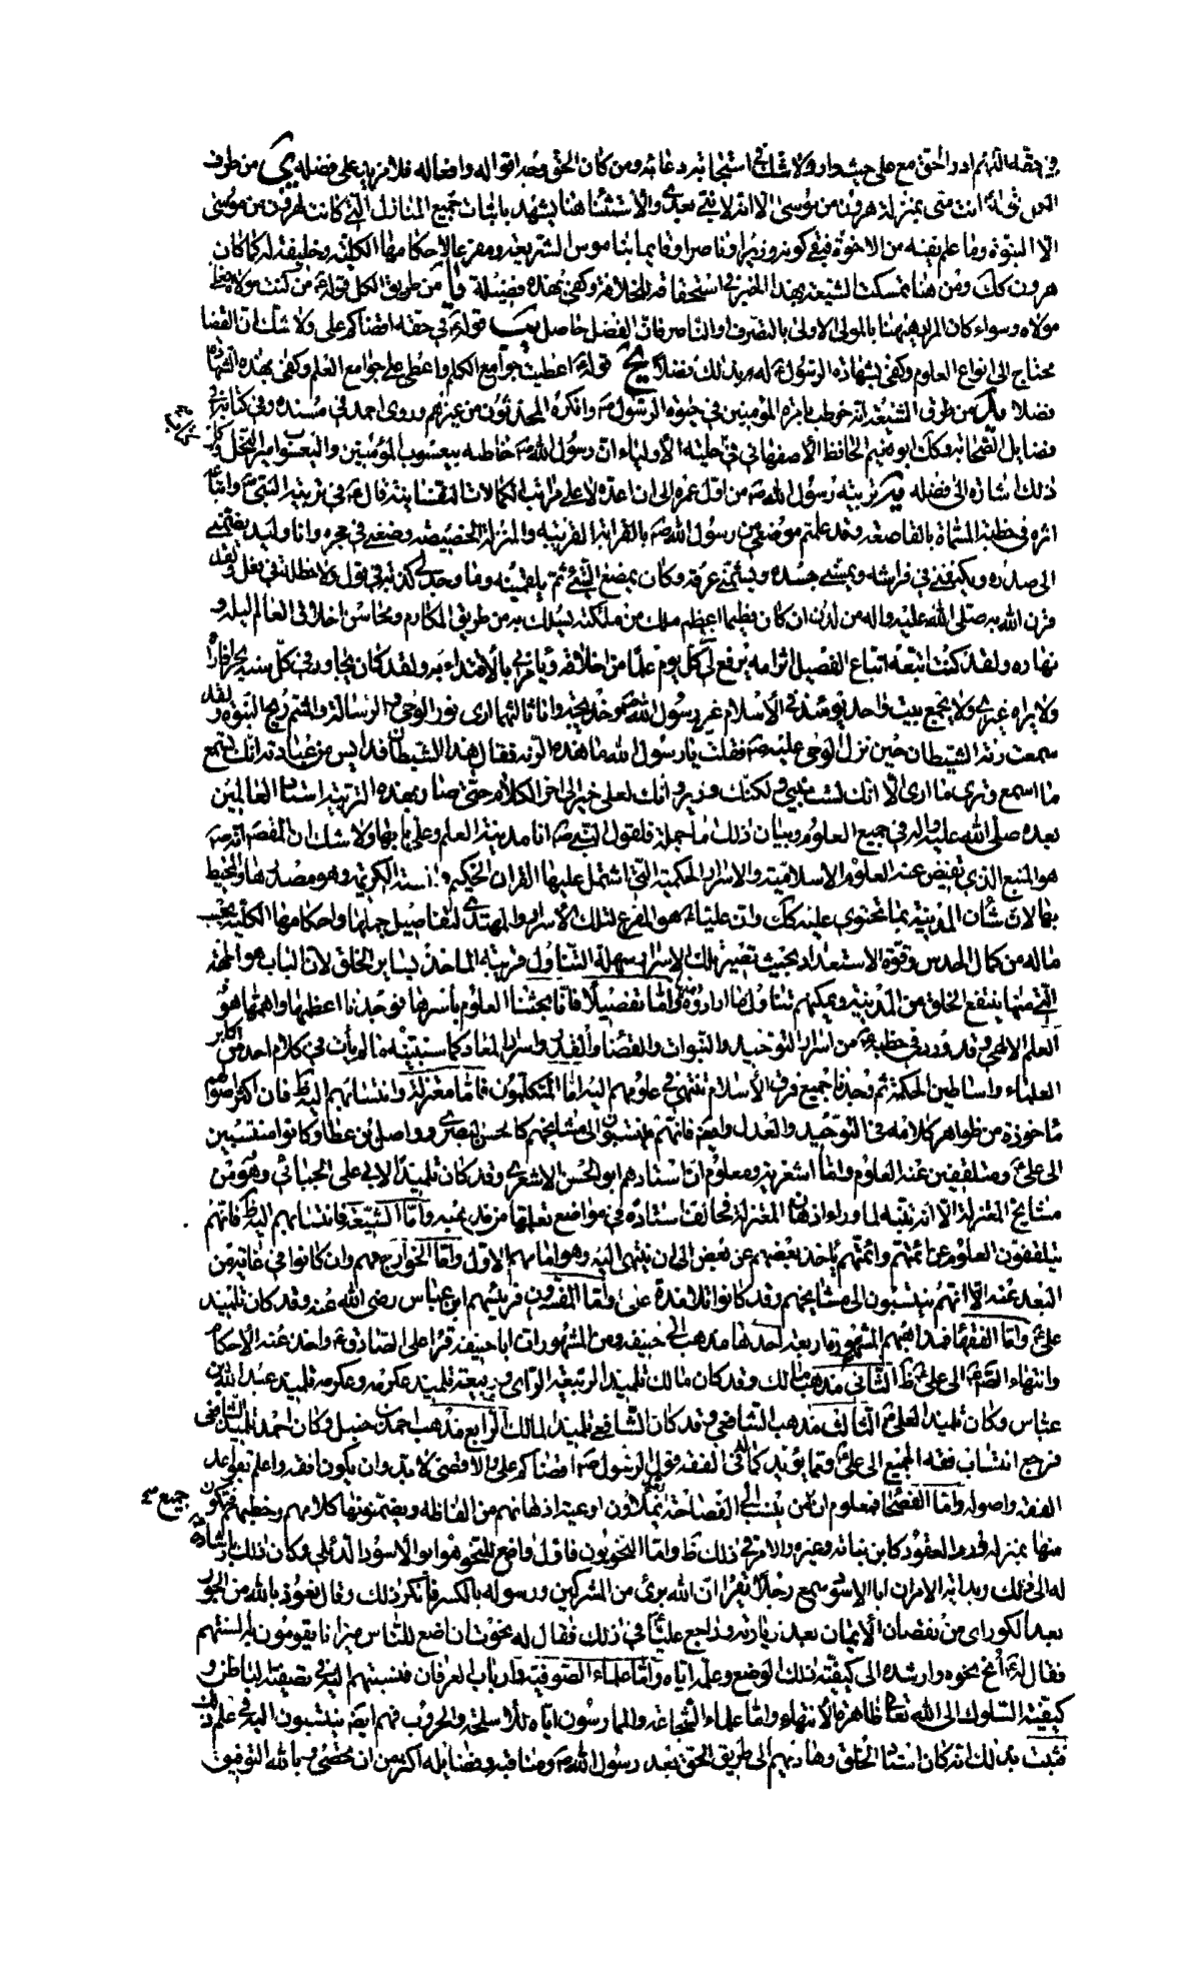 في حقه اللهم ادر الحق مع علي حيث دار ولا شك في استجابة دعائه ومن كان الحق معه اقواله وافعاله فلا مزيد على فضله ى من طرف
الكل قوله انت مني بمنزلة هرون من موسى الا انه لا نبي بعدي والاستثناء هنا يشهد باثبات جميع المنازل التي كانت لهرون من موسى
الا النبوة وما علم نفيه من الاخوة فبقي كونه وزيرا وناصرا وقايما بناموس الشريعة ومفزعا لاحكامها الكلية وخليفة له كما كان
هرون كك ومن هنا تمسكت الشيعة بهذا الخبر في استحقاقه للخلافة وكفى بهذه فضيلة يا من طريق الكل قوله من كنت مولاه فعلي
مولاه وسواء كان المراد هيهنا بالمولى الاولى بالتصرف او الناصر فان الفضل حاصل يب قوله في حقه اقضاكم علي ولا شك ان القضا
محتاج الى انواع العلوم وكفى بشهادة الرسول له بذلك فضلا يج قوله اعطيت جوامع الكلم واعطي علي جوامع العلم وكفى بهذه الشهادة
فضلا يد من طرف الشيعة انه خوطب بامرة المؤمنين في حيوة الرسول ص وانكره المحدثون من غيرهم وروى احمد في مسنده وفي كتابه في
فضايل الصحابة وكك ابو نعيم الحافظ الاصفهاني في حلية الاولياء ان رسول الله ص خاطبه بيعسوب المؤمنين واليعسوب امير النحل وكل
ذلك اشارة الى فضله يه تربيته رسول الله ص من اول عمره الى ان اعده لاعلى مراتب الكمالات النفسانية قال ع في تربية النبي ص واتباعه
اثره في خطبته المسماة بالقاصعة وقد علمتم موضعي من رسول الله ص بالقرابة القريبة والمنزلة الخصيصة وضعني في حجره وانا وليد يضمني
الى صدره ويكنفني في فراشه ويمسني جسده ويشمني عرفه وكان يمضغ الشيء ثم يلقمنيه وما وجد لي كذبة في قول ولا خطلة في فعل ولقد
قرن الله به صلى الله عليه واله من لدن ان كان فطيما اعظم ملك من ملئكته يسلك به من طريق المكارم ومحاسن اخلاق العالم ليله و
نهاره ولقد كنت اتبعه اتباع الفصيل اثر امه يرفع لي كل يوم علما من اخلاقه ويامرني بالاقتداء به ولقد كان يجاور في كل سنة بحراء فاراه
ولا يراه غيري ولا يجمع بيت واحد يومئذ في الاسلام غير رسول الله ص وخديجة وانا ثالثهما ارى نور الوحي والرسالة واشم ريح النبوة ولقد
سمعت رنة الشيطان حين نزل الوحي عليه ص فقلت يا رسول الله ما هذه الرنة فقال هذا الشيطان قد ايس من عبادته انك تسمع
ما اسمع وترى ما ارى الا انك لست بنبي ولكنك وزير وانك لعلى خير الى اخر الكلام حتى صار بهذه التربية استاد العالمين
بعده صلى الله عليه واله في جميع العلوم وبيان ذلك اما جملة فلقول النبي ص انا مدينة العلم وعلي بابها ولا شك ان المقصد انه ص
هو المنبع الذي تفيض عنه العلوم الاسلامية والاسرار الحكمية التي اشتمل عليها القران الحكيم والسنة الكريمة وهو مصدرها والمحيط
بها لان شأن المدينة بما تحتوي عليه كك وان عليا ع هو المفرع لتلك الاسرار والمهتدي لتفاصيل جملها واحكامها الكلية بحسب
ماله من كمال الحدس وقوة الاستعداد بحيث تصير تلك الاسرار سهلة التناول قريبة الماخذ لساير الخلق لان الباب هو الجهة
التي منها ينتفع الخلق من المدينة ويمكنهم تناول ما ارادوه واما تفصيلا فانا بحثنا العلوم باسرها فوجدنا اعظمها واهمها هو
العلم الالهي وقد ورد في خطبه من اسرار التوحيد والنبوات والقضاء والقدر واسرار المعاد كما سنبينه ما لم يات في كلام احد من اكابر
العلماء واساطين الحكمة ثم وجدنا جميع فرق الاسلام تنتهي في علومهم اليه اما المتكلمون فاما معتزلة وانتسابهم اليه ظ فان اكثر اصولهم
ماخوذة من ظواهر كلامه في التوحيد والعدل وايضا فانهم ينتسبون الى مشايخهم كالحسن البصري وواصل بن عطا وكانوا منتسبين
الى علي ع ومتلقفين عنه العلوم واما اشعرية ومعلوم ان استادهم ابو الحسن الاشعري وقد كان تلميذا لابي علي الجبائي وهو من
مشايخ المعتزلة الا انه تنبه لما وراء اذهان المعتزلة فخالف استاده في مواضع تعلمها من مذهبه واما الشيعة فانتسابهم اليه ظ فانهم
يتلقفون العلوم عن ائمتهم وائمتهم ياخذ بعضهم عن بعض الى ان ينتهي اليه وهو امامهم الاول واما الخوارج فهم وان كانوا في غاية من
البعد عنه الا انهم ينتسبون الى مشايخهم وقد كانوا تلامذة علي واما المفسرون فرئيسهم ابن عباس رضي الله عنه وقد كان تلميذ
علي ع واما الفقها فمذاهبهم المشهورة اربعة احدها مذهب ابي حنيفة ومن المشهور ان ابا حنيفة قرا على الصادق ع واخذ عنه الاحكام
وانتهاء الصادق الى علي ع ظ الثاني مذهب مالك وقد كان مالك تلميذ الربيعة الراى وربيعة تلميذ عكرمه وعكرمه تلميذ عبد الله بن
عباس وكان تلميذا لعلي ع الثالث مذهب الشافعي وقد كان الشافعي تلميذا لمالك الرابع مذهب احمد بن حنبل وكان احمد تلميذ الشافعي
فرجع انتساب فقه الجميع الى علي ع ومما يؤيد كماله في الفقه قول الرسول ص اقضاكم علي والاقضى لا بد وان يكون افقه واعلم بقواعد
الفقه واصوله واما الفصحا فمعلوم ان من ينسب الى الفصاحة بعده يملاون اوعية اذهانهم من الفاظه ويضمنونها كلامهم وخطبهم فتكون
منها بمنزلة درر العقود كابن نباته وغيره والامر في ذلك ظ واما النحويون فاول واضع للنحو هو ابو الاسود الدئلي وكان ذلك بارشاده
له الى ذلك وبداية الامر ان ابا الاسود سمع رجلا يقرأ ان الله برئ من المشركين ورسوله بالكسر فانكر ذلك وقال نعوذ بالله من الحور
بعد الكور اى من نقصان الايمان بعد زيادته وراجع عليا في ذلك فقال له نحوت ان اضع للناس ميزانا يقومون به السنتهم
فقال له ع انح نحوه وارشده الى كيفية ذلك الوضع وعلمه اياه واما علماء الصوفية وارباب العرفان فنسبتهم اليه في تصفية الباطن و
كيفية السلوك الى الله تعالى ظاهرة الانتهاء واما علماء الشجاعة والممارسون اياه للاسلحة والحروب فهم ايضا ينتسبون اليه في علم ذلك
فثبت بذلك انه كان استاد الخلق وهاديهم الى طريق الحق بعد رسول الله ص ومناقبه وفضايله اكثر من ان تحصى وبالله التوفيق
جميع